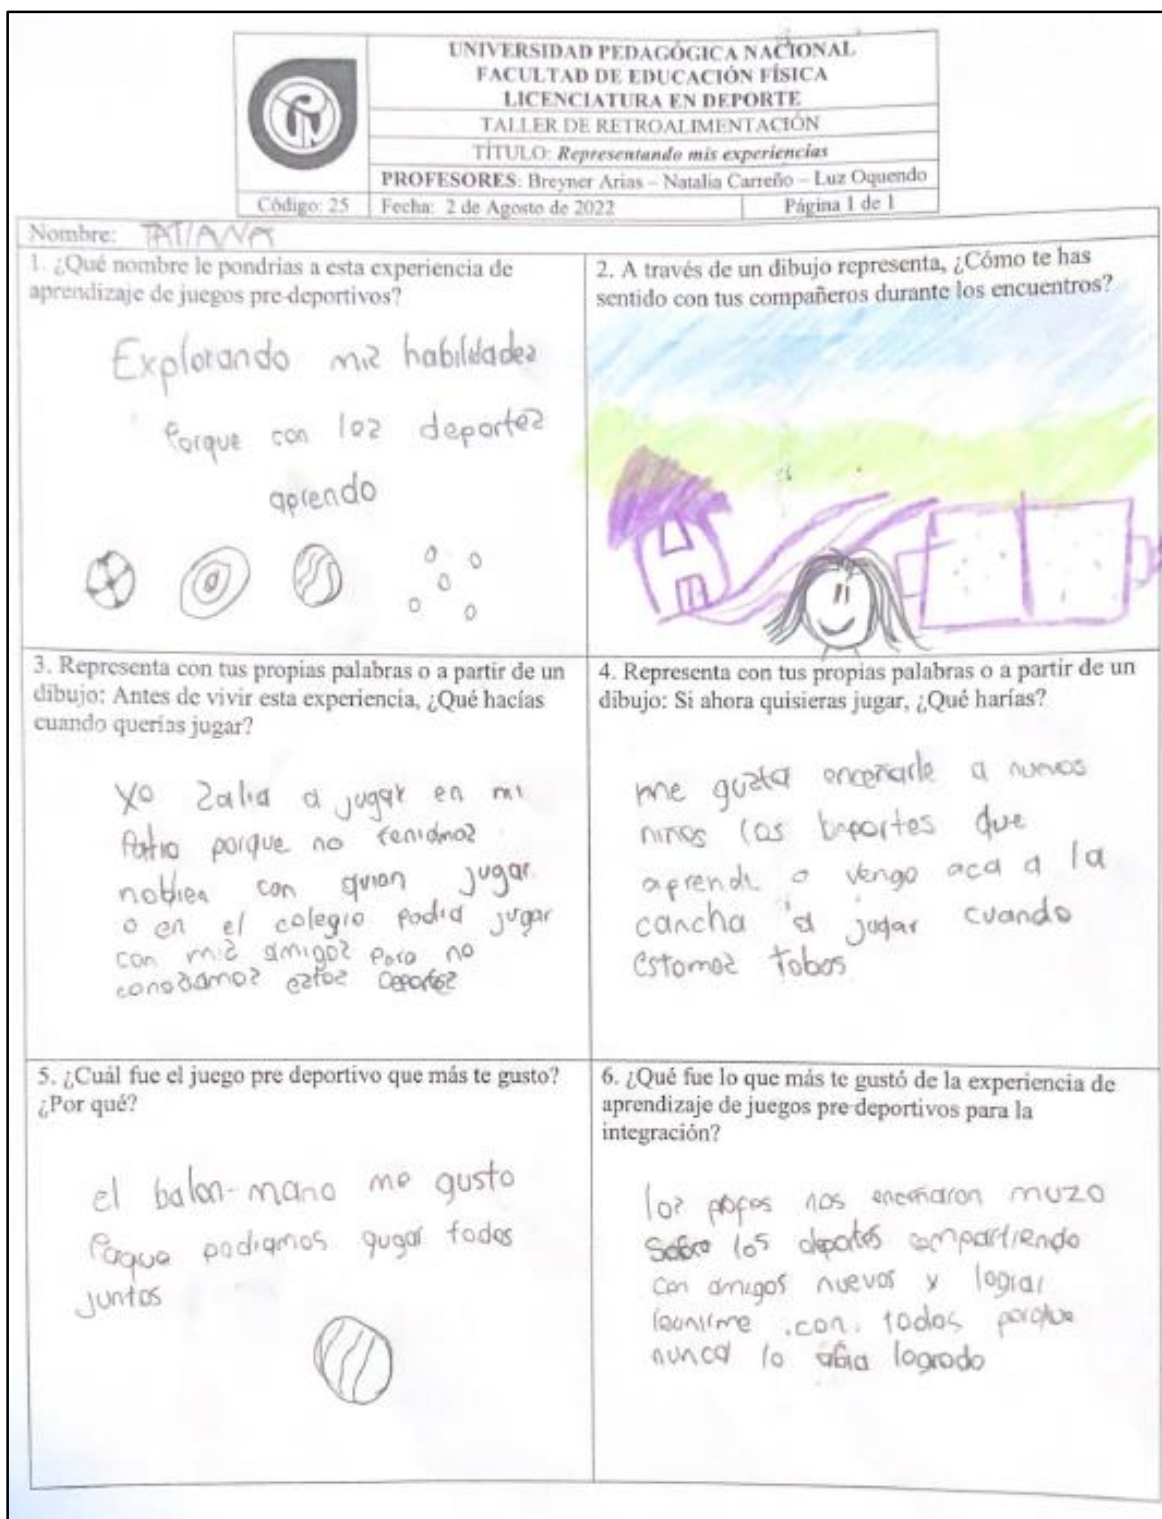 UNIVERSIDAD PEDAGÓGICA NACIONAL
FACULTAD DE EDUCACIÓN FÍSICA
LICENCIATURA EN DEPORTE
TALLER DE RETROALIMENTACIÓN
TÍTULO: Representando mis experiencias
PROFESORES: Breyner Arias – Natalia Carreño – Luz Oquendo
Código: 25 Fecha: 2 de Agosto de 2022 Página 1 de 1
Nombre: TATIANA
1. ¿Qué nombre le pondrías a esta experiencia de
aprendizaje de juegos pre-deportivos?
Explorando mis habilidades
Porque con los deportes
aprendo
2. A través de un dibujo representa, ¿Cómo te has
sentido con tus compañeros durante los encuentros?
3. Representa con tus propias palabras o a partir de un
dibujo: Antes de vivir esta experiencia, ¿Qué hacías
cuando querías jugar?
Yo Salia a jugar en mi
Patio porque no teniamos
con quien jugar
o en el colegio Podia jugar
con mis amigos Pero no
estos Deportes
4. Representa con tus propias palabras o a partir de un
dibujo: Si ahora quisieras jugar, ¿Qué harías?
me gusta enceñarle a nuevos
niños los beportes que
aprendi o vengo aca a la
cancha a jugar cuando
estamos tobos
5. ¿Cuál fue el juego pre deportivo que más te gusto?
¿Por qué?
el balon-mano me gusto
Paque podiamos gugar todos
juntos
6. ¿Qué fue lo que más te gustó de la experiencia de
aprendizaje de juegos pre-deportivos para la
integración?
los profes nos enceñaron muzo
Sobre los deportes compartiendo
con amigos nuevos y lograr
reunirme con todos porque
nunca lo abia logrado